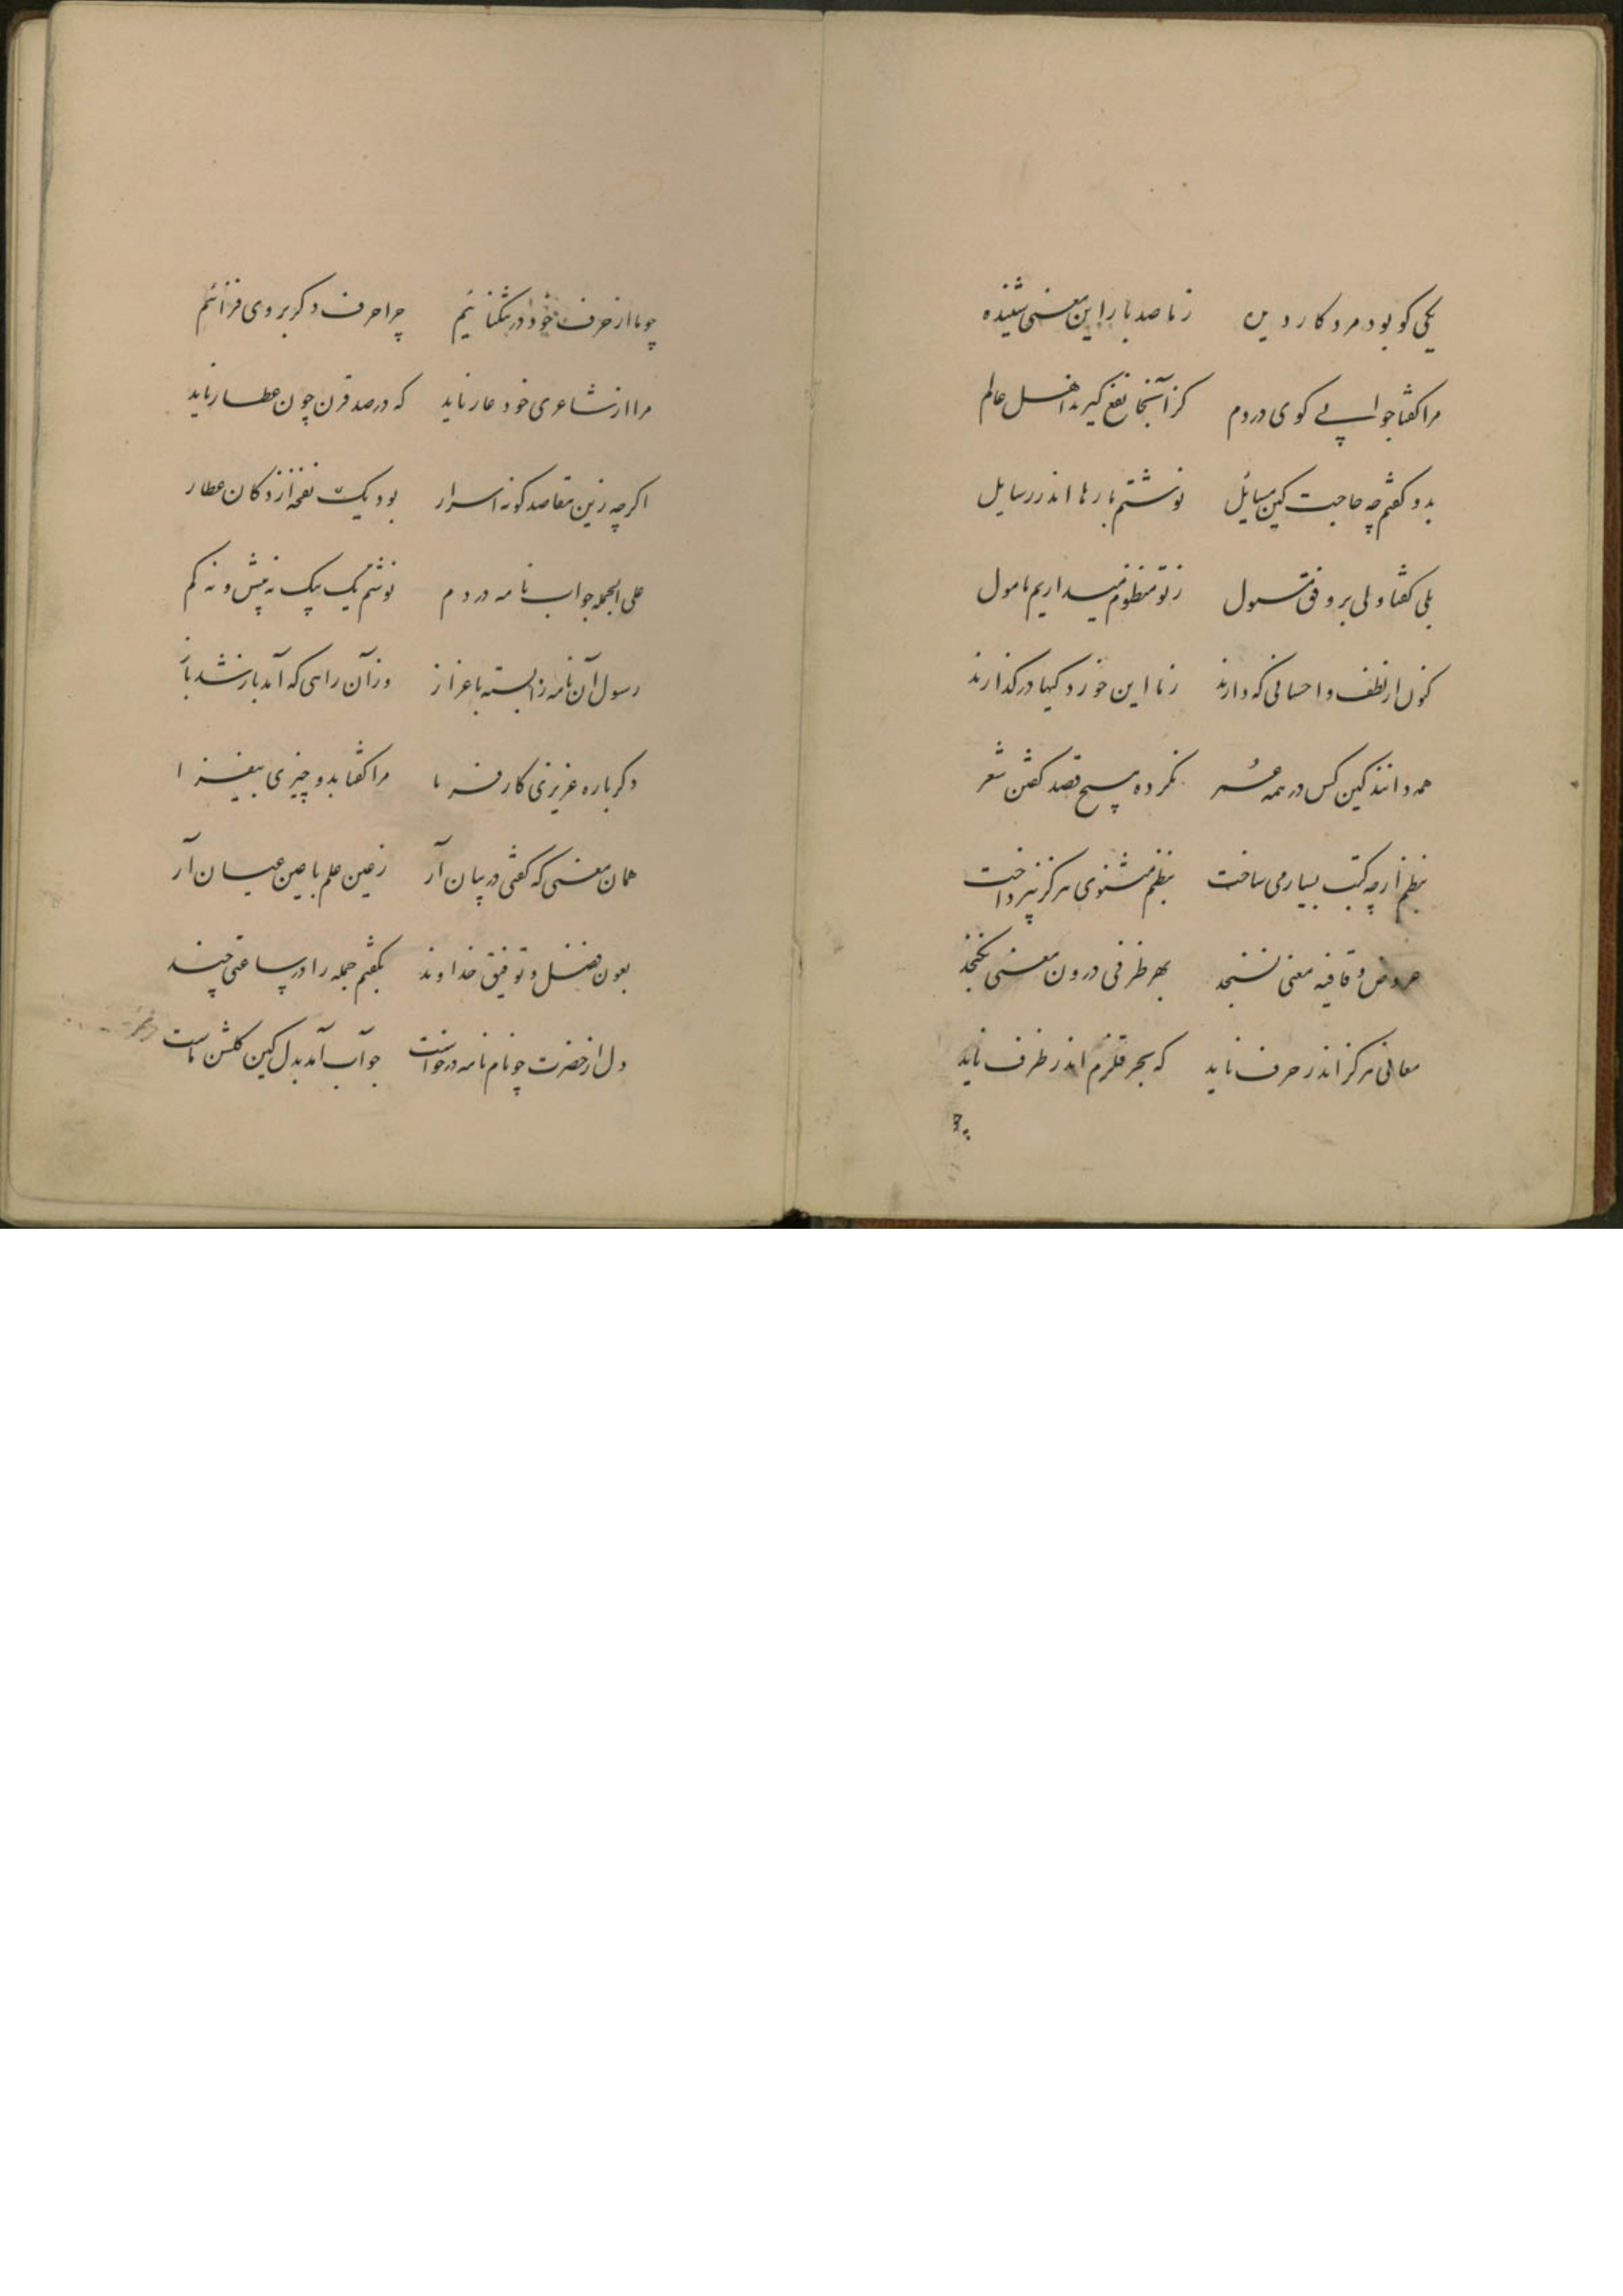 یکی کو بود مرد کار دیده زما صد بار این معنی شنیده
مرا کفتا جوابی کوی در دم کز آنجا نفع گیرند اهل عالم
بدو کفتم چه حاجت کین مسایل نوشتم بارها اندر رسایل
بلی کفتا ولی بر وفق مسول ز تو منظوم میداریم مامول
کنون از لطف و احسانی که دارند زما این خوردکیها در کذارند
همه دانند کین کس در همه عمر نکرده هیچ قصد کفتن شعر
بنظم ارچه کتب بسیار می ساخت بنظم مثنوی هرکز نپرداخت
عروض و قافیه معنی نسنجد بهر ظرفی درون معنی نکنجد
معانی هرکز اندر حرف ناید که بحر قلزم اندر ظرف ناید
چو
چو ما از حرف خود در تنکنائیم چرا حرف دکر بروی فزائیم
مرا از شاعری خود عار ناید که در صد قرن چون عطار ناید
اکرچه زین مقاصد کونه اسرار بود یک نفحه از دکان عطار
علی الجمله جواب نامه در دم نوشتم یک بیک نه بیش و نه کم
رسول آن نامه را بستد باعزاز وز آن راهی که آمد باز شد باز
دکرباره عزیزی کارفرما مرا کفتا بدو چیزی بیفزا
همان معنی که کفتی در بیان آر ز عین علم با عین عیان آر
بعون فضل و توفیق خداوند بکفتم جمله را در ساعتی چند
دل از حضرت چو نام نامه درخواست جواب آمد بدل کین کلشن ماست